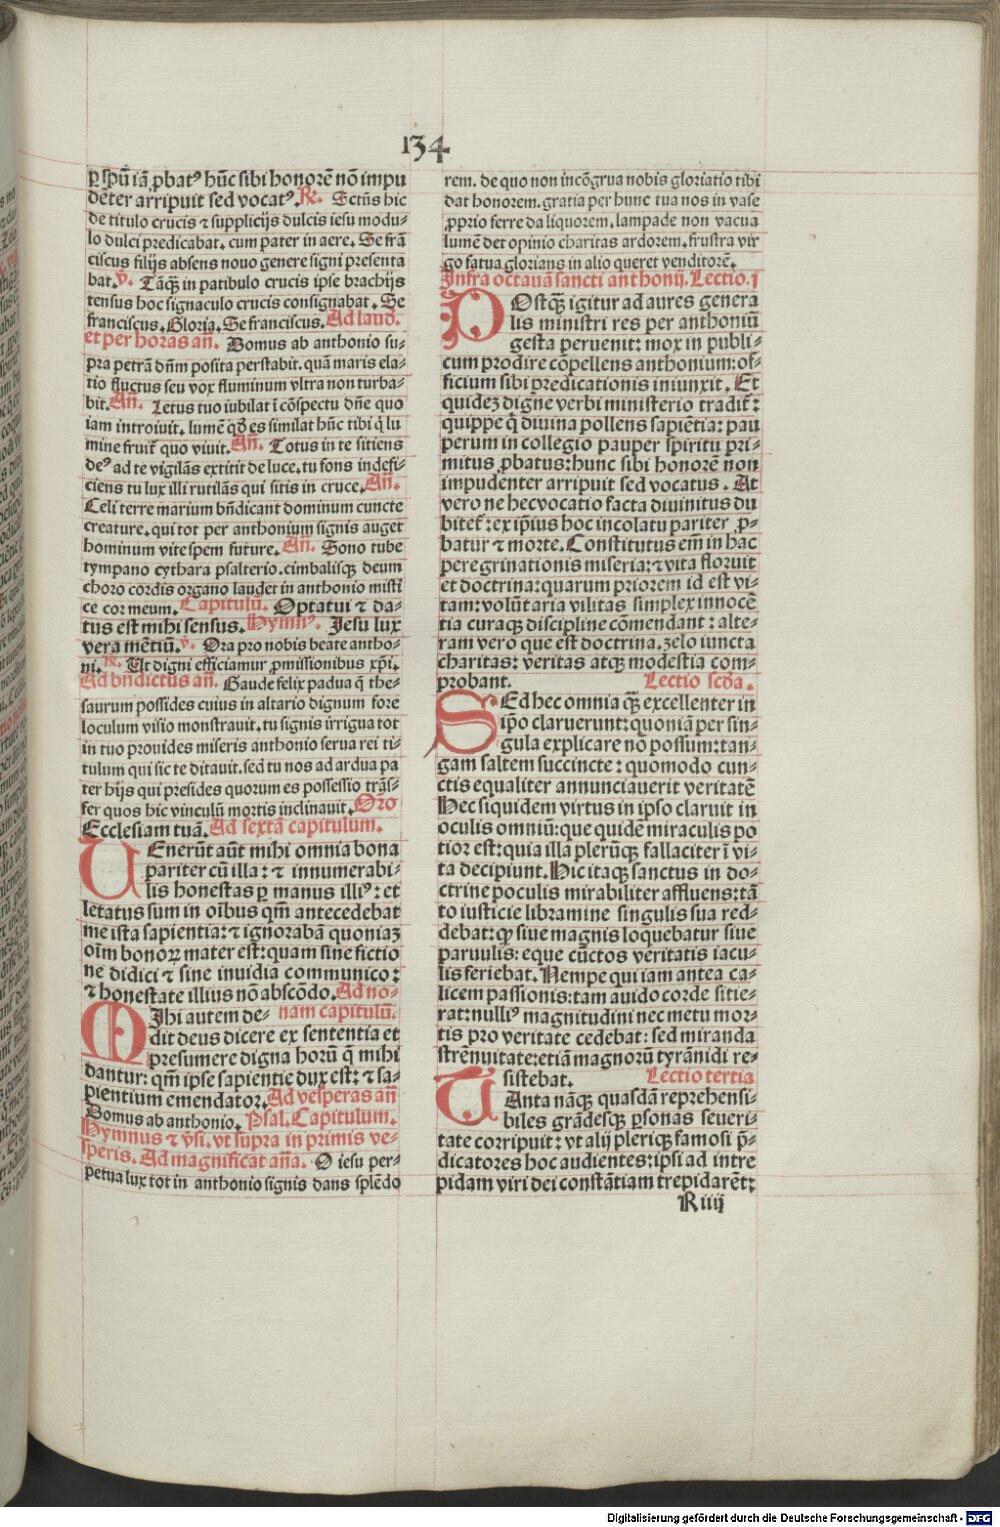 134
ꝑ spūiā ꝓbatꝰ hūc sibi honorē nō impu
dēter arripuit sed vocatꝰ. ℞. Sctūs hic
de titulo crucis ⁊ supplicijs dulcis iesu modu-
lo dulci predicabat. cum pater in aere. Se frā
ciscus filijs absens nouo genere signi presenta
bat. ꝟ. Tāqꝫ in patibulo crucis ipse brachijs
tensus hoc signaculo crucis consignabat. Se
franciscus. Gloria. Se franciscus. Ad laud.
et per horas an̄. Domus ab anthonio su-
pra petrā dn̄m posita perstabit. quā maris ela-
tio fluctus seu vox fluminum vltra non turba-
bit. An̄. Letus tuo iubilat ī cōspectu dn̄e quo
iam introiuit. lumē qd̄ es similat hūc tibi q̇ lu
mine fruitˀ quo viuit. An̄. Totus in te sitiens
deꝰ ad te vigilās extitit de luce. tu fons indefi-
ciens tu lux illi rutilās qui sitis in cruce. An̄.
Celi terre marium bn̄dicant dominum cuncte
creature. qui tot per anthonium signis auget
hominum vite spem future. An̄. Sono tube
tympano cythara psalterio. cimbalisqꝫ deum
choro cordis organo laudet in anthonio misti
ce cor meum. Capitulū. Optatui ⁊ da-
tus est mihi sensus. Hymnꝰ. Jesu lux
vera mētiū. ꝟ. Ora pro nobis beate antho-
ni. ℞. Ut digni efficiamur ꝓmissionibus xp̄i.
Ad bn̄dictus an̄. Gaude felix padua q̄ the-
saurum possides cuius in altario dignum fore
loculum visio monstrauit. tu signis irrigua tot
in tuo prouides miseris anthonio serua rei ti-
tulum qui sic te ditauit. sed tu nos ad ardua pa
ter hijs qui presides quorum es possessio trās-
fer quos hic vinculū mortis inclinauit. Oro
Ecclesiam tuā. Ad sextā capitulum.
UEnerūt aūt mihi omnia bona
pariter cū illa: ⁊ innumerabi-
lis honestas ꝑ manus illiꝰ: et
letatus sum in oībus qm̄ antecedebat
me ista sapientia: ⁊ ignorabā quoniaꝫ
oīm bonoꝝ mater est: quam sine fictio
ne didici ⁊ sine inuidia communico:
⁊ honestate illius nō abscōdo. Ad no-
MIhi autem de- nam capitulū.
dit deus dicere ex sententia et
presumere digna horū q̄ mihi
dantur: qm̄ ipse sapientie dux est: ⁊ sa-
pientium emendator. Ad vesperas an̄
Domus ab anthonio. Psal. Capitulum.
Hymnus ⁊ ꝟsi. vt supra in primis ve-
speris. Ad magnificat an̄a. O iesu per-
petua lux tot in anthonio signis dans splēdo
rem. de quo non incōgrua nobis gloriatio tibi
dat honorem. gratia per hunc tua nos in vase
ꝓprio ferre da liquorem. lampade non vacua
lumē det opinio charitas ardorem. frustra vir
go fatua glorians in alio queret venditorē.
Infra octauā sancti anthonij. Lectio. j
POstqꝫ igitur ad aures genera
lis ministri res per anthoniū
gesta peruenit: mox in publi-
cum prodire cōpellens anthonium: of-
ficium sibi predicationis iniunxit. Et
quideꝫ digne verbi ministerio traditˀ:
quippe q̇ diuina pollens sapiētia: pau
perum in collegio pauper spiritu pri-
mitus ꝓbatus: hunc sibi honorē non
impudenter arripuit sed vocatus. At
vero ne hec vocatio facta diuinitus du
bitetˀ: ex ipsius hoc incolatu pariter ꝓ-
batur ⁊ morte. Constitutus em̄ in hac
peregrinationis miseria: ⁊ vita floruit
et doctrina: quarum priorem id est vi-
tam: volūtaria vilitas simplex innocē
tia curaqꝫ discipline cōmendant: alte-
ram vero que est doctrina. zelo iuncta
charitas: veritas atqꝫ modestia com-
probant. Lectio scd̄a.
SEd hec omnia qꝫ excellenter in
ip̄o claruerunt: quoniā per sin-
gula explicare nō possum: tan-
gam saltem succincte: quomodo cun-
ctis equaliter annunciauerit veritatē
Hec siquidem virtus in ipso claruit in
oculis omniū: que quidē miraculis po
tior est: quia illa plerūqꝫ fallaciter ī vi-
ta decipiunt. Hic itaqꝫ sanctus in do-
ctrine poculis mirabiliter affluens: tā
to iusticie libramine singulis sua red-
debat: qp̄ siue magnis loquebatur siue
paruulis: eque cūctos veritatis iacu-
lis feriebat. Nempe qui iam antea ca-
licem passionis: tam auido corde sitie-
rat: nulliꝰ magnitudini nec metu mor-
tis pro veritate cedebat: sed miranda
strēnuitate: etiā magnorū tyrānidi re-
sistebat. Lectio tertia
TAnta nāqꝫ quasdā reprehensi-
biles grādesqꝫ ꝑsonas seueri-
tate corripuit: vt alij pleriqꝫ famosi p̄-
dicatores hoc audientes: ipsi ad intre
pidam viri dei constātiam trepidarēt:
R iiij
Digitalisierung gefördert durch die Deutsche Forschungsgemeinschaft - DFG